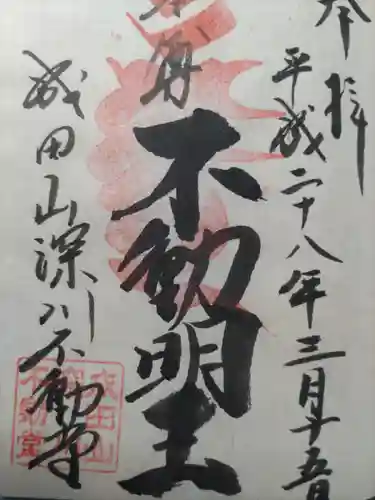 奉拝
平成二十八年三月十五日
本尊
不動明王
成田山深川不動堂
成田山
不動堂